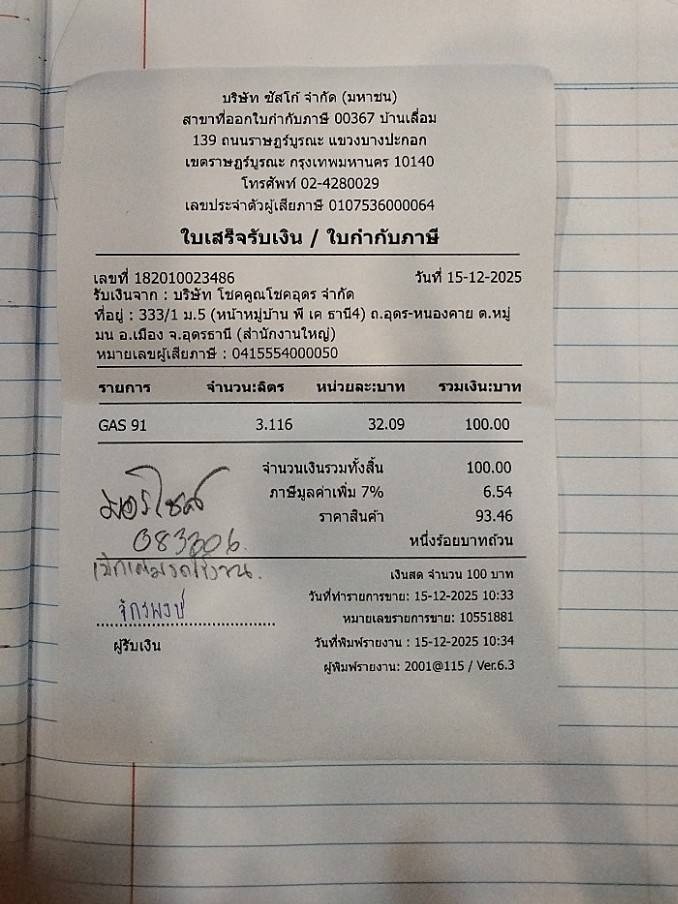 บริษัท ซัสโก้ จำกัด (มหาชน)
สาขาที่ออกใบกำกับภาษี 00367 บ้านเลื่อม
139 ถนนราษฎร์บูรณะ แขวงบางปะกอก
เขตราษฎร์บูรณะ กรุงเทพมหานคร 10140
โทรศัพท์ 02-4280029
เลขประจำตัวผู้เสียภาษี 0107536000064
ใบเสร็จรับเงิน / ใบกำกับภาษี
เลขที่ 182010023486 วันที่ 15-12-2025
รับเงินจาก : บริษัท โชคคูณโชคอุดร จำกัด
ที่อยู่ : 333/1 ม.5 (หน้าหมู่บ้าน พี เค ธานี4) ถ.อุดร-หนองคาย ต.หมู่
มน อ.เมือง จ.อุดรธานี (สำนักงานใหญ่)
หมายเลขผู้เสียภาษี : 0415554000050
รายการ จำนวน:ลิตร หน่วยละ:บาท รวมเงิน:บาท
GAS 91 3.116 32.09 100.00
จำนวนเงินรวมทั้งสิ้น 100.00
ภาษีมูลค่าเพิ่ม 7% 6.54
ราคาสินค้า 93.46
หนึ่งร้อยบาทถ้วน
มอไซค์
083306
จักรพงษ์
ผู้รับเงิน
เงินสด จำนวน 100 บาท
วันที่ทำรายการขาย: 15-12-2025 10:33
หมายเลขรายการขาย: 10551881
วันที่พิมพ์รายงาน : 15-12-2025 10:34
ผู้พิมพ์รายงาน: 2001@115 / Ver.6.3